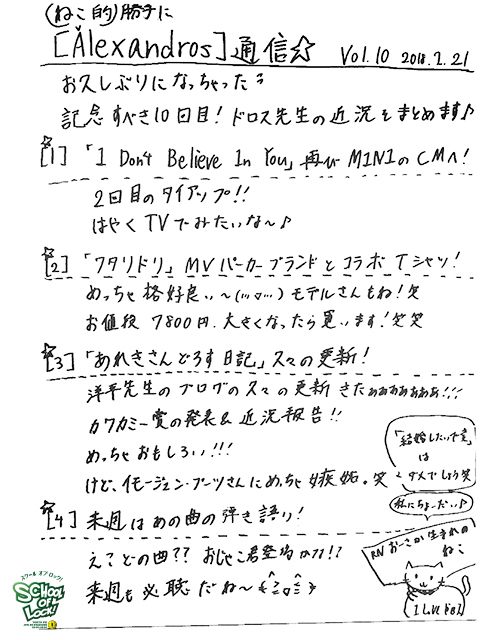 (ねこ的)勝手に
[Alexandros]通信☆ Vol.10 2018.2.21
お久しぶりになっちゃったョ
記念すべき10回目!ドロス先生の近況をまとめます♪
[1]「I Don't Believe In You」再びMINIのCMへ!
2回目のタイアップ!!
はやくTVでみたいな〜♪
[2]「フタリドリ」MVパーカーブランドとコラボTシャツ!
めっちゃ格好良い〜(…▽…)モデルさんもね!笑
お値段7800円.大きくなったら買います!笑笑
[3]「あれきさんどろす日記」久々の更新!
洋平先生のブログの久々の更新きたぁぁぁぁぁぁぁ!!!
カワカミー賞の発表&近況報告!!
めっちゃおもしろい!!!
けど、イモージェン・プーツさんにめっちゃ嫉妬。笑
「結婚したい大賞」
は
ダメでしょう笑
私にちょーだい♪
[4]来週はあの曲の弾き語り!
えってどの曲??おじゃこ君登場か??!?
来週も必聴だね〜
RN おーさか生まれの
ねこ
I LOVE
スクール オブ ロック!
SCHOOL OF LOCK!